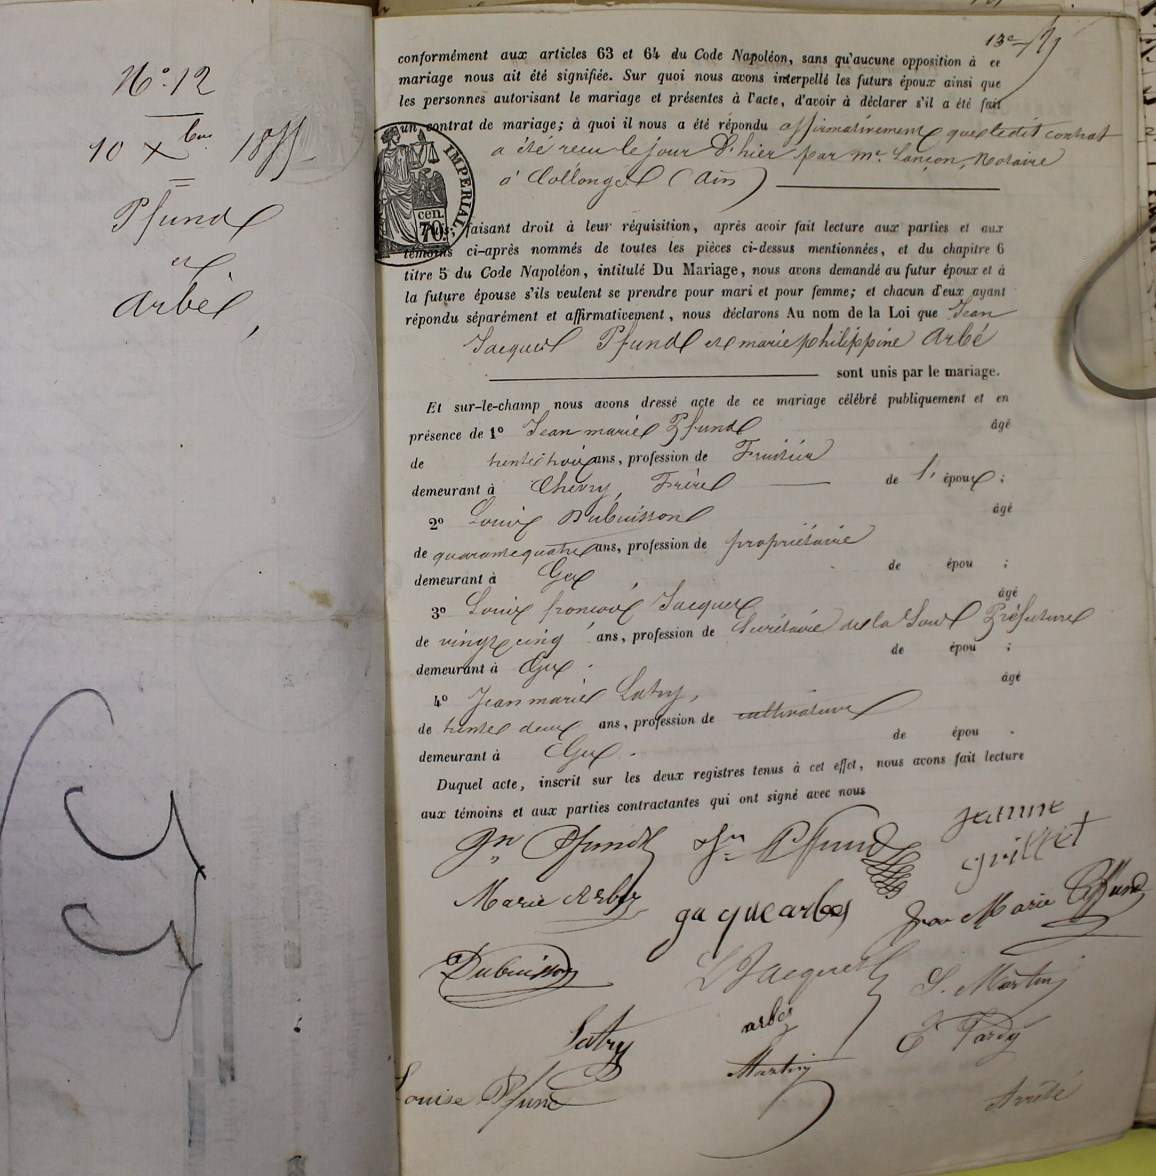 N.° 12
10 Xbre 1855
Pfund
et
Arbé,
13e
conformément aux articles 63 et 64 du Code Napoléon, sans qu'aucune opposition à ce
mariage nous ait été signifiée. Sur quoi nous avons interpellé les futurs époux ainsi que
les personnes autorisant le mariage et présentes à l'acte, d'avoir à déclarer s'il a été fait
un contrat de mariage; à quoi il nous a été répondu affirmativement que ledit contrat
a été recu le jour d'hier par me. Lançon, Notaire
à Collonges (ain)
IMPERIAL
cen.
70
faisant droit à leur réquisition, après avoir fait lecture aux parties et aux
témoins ci-après nommés de toutes les pièces ci-dessus mentionnées, et du chapitre 6
titre 5 du Code Napoléon, intitulé Du Mariage, nous avons demandé au futur époux et à
la future épouse s'ils veulent se prendre pour mari et pour femme; et chacun d'eux ayant
répondu séparément et affirmativement, nous déclarons Au nom de la Loi que Jean
Jacques Pfund et marie philippine Arbé
sont unis par le mariage.
Et sur-le-champ nous avons dressé acte de ce mariage célébré publiquement et en
présence de 1° Jean marie Pfund âgé
de trente trois ans, profession de Fruitier
demeurant à Chevry, Frère de l'époux;
2° Louis Dubuisson âgé
de quarante quatre ans, profession de propriétaire
demeurant à Gex de épou ;
3° Louis françois Jacquet âgé
de vingt cinq ans, profession de Secrétaire de la Sous Préfecture
demeurant à Gex. de épou ;
4° Jean marie Latry, âgé
de trente deux ans, profession de cultivateur
demeurant à Gex. de épou .
Duquel acte, inscrit sur les deux registres tenus à cet effet, nous avons fait lecture
aux témoins et aux parties contractantes qui ont signé avec nous
Jn Pfund Jn Pfund Jeanne
grillet
Marie Arbez gaquearbes Jean Marie Pfund
Dubuisson L Jacquet S. Martin
Latry arbez E Tardy
Louise Pfund Martin
Arrêté